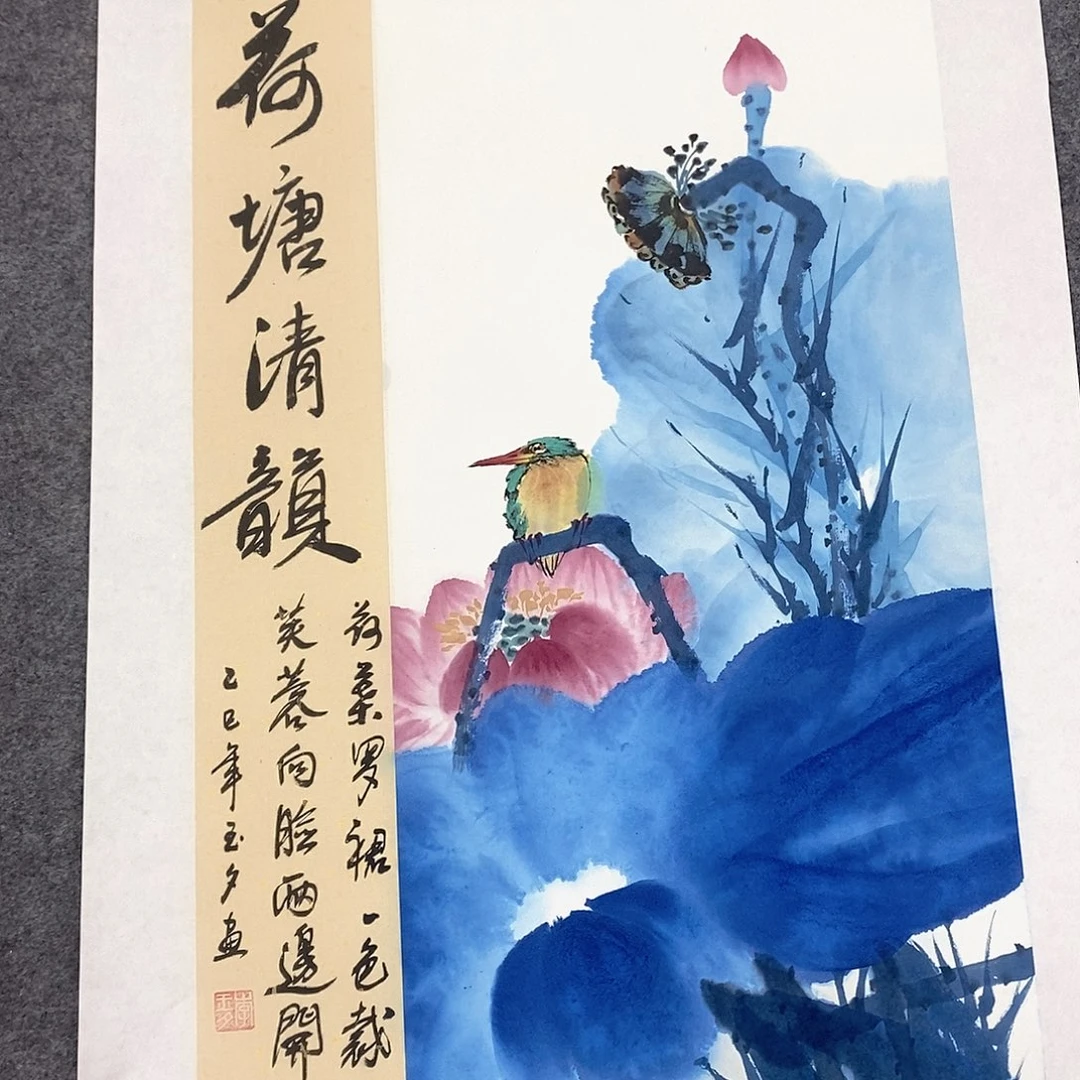 荷塘清韻
荷葉罗裙一色裁
芙蓉向脸两邊開
乙巳年玉夕畫